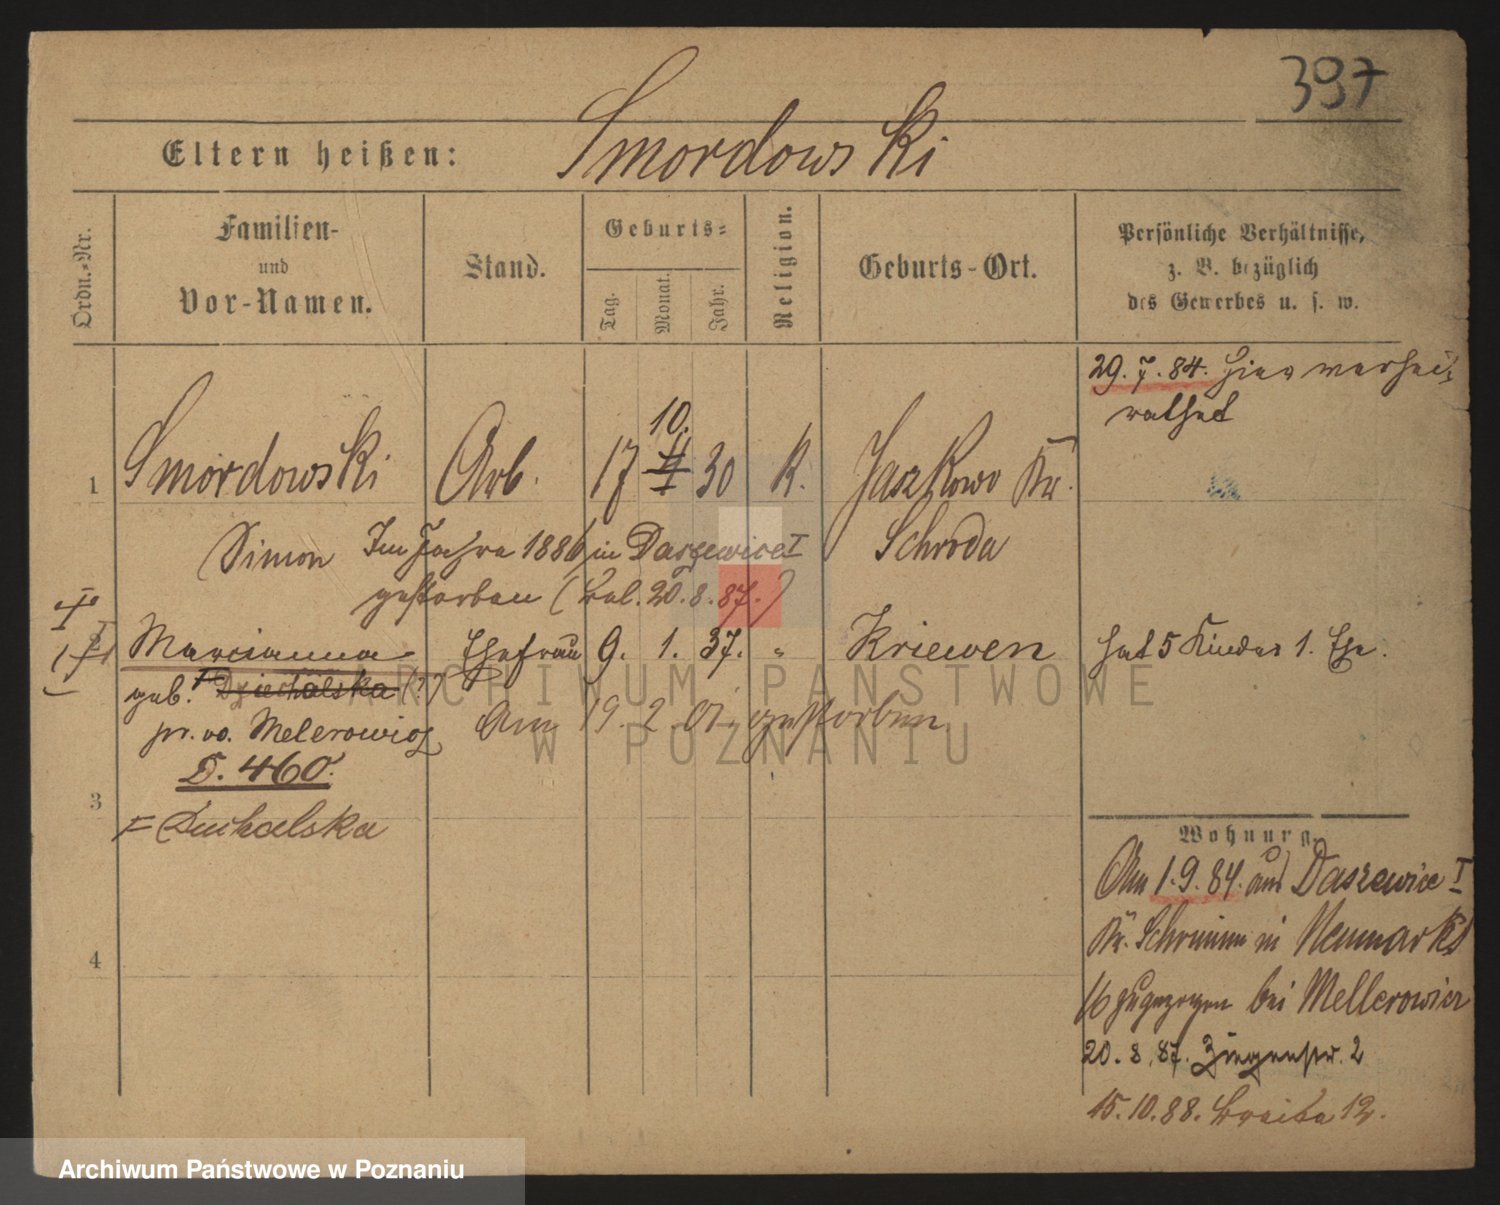 397
Eltern heißen: Smordowski
Ordn.-Nr.
Familien-
und
Vor-Namen.
Stand.
Geburts-
Tag.
Monat.
Jahr.
Religion.
Geburts-Ort.
Persönliche Verhältnisse,
z. B. bezüglich
des Gewerbes u. s. w.
29. 7. 84. hier verhei-
rathet
10.
1 Smordowski Arb. 17 30 K. Jaszkowo Kr.
Schroda
Simon Im Jahre 1886 in Daszewice I
gestorben (Bal. 20. 8. 87.)
Marianna Ehefrau 9. 1. 37. " Kriewen hat 5 Kinder 1. Ehe.
geb. Dziechalska (?)
pr. vo. Melerowicz Am 19. 2. 01. gestorben
S. 460.
3
= Duchalska
4
Wohnung.
Am 1. 9. 84. aus Daszewice I
Kr. Schrimm in Neumarkt
16 zugezogen bei Mellerowicz
20. 8. 87. Ziegenstr. 2
15. 10. 88. Breite 12.
ARCHIWUM PAŃSTWOWE
W POZNANIU
Archiwum Państwowe w Poznaniu